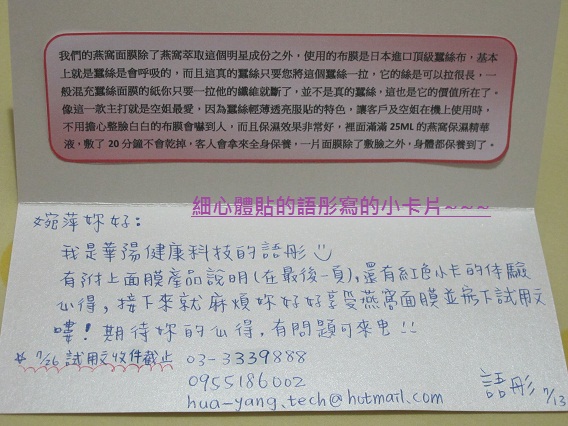 我們的燕窩面膜除了燕窩萃取這個明星成份之外，使用的布膜是日本進口頂級蠶絲布，基本
上就是蠶絲是會呼吸的，而且這真的蠶絲只要您將這個蠶絲一拉，它的絲是可以拉很長，一
般混充蠶絲面膜的紙你只要一拉他的纖維就斷了，並不是真的蠶絲，這也是它的價值所在了。
像這一款主打就是空姐最愛，因為蠶絲輕薄透亮服貼的特色，讓客戶及空姐在機上使用時，
不用擔心整臉白白的布膜會嚇到人，而且保濕效果非常好，裡面滿滿 25ML 的燕窩保濕精華
液，敷了 20 分鐘不會乾掉，客人會拿來全身保養，一片面膜除了敷臉之外，身體都保養到了。
細心體貼的語彤寫的小卡片~~~
婉萍妳好：
我是華陽健康科技的語彤
有附上面膜產品說明(在最後一頁),還有紅色小卡的体驗
心得，接下來就麻煩妳好好享受燕窩面膜並寫下試用文
嘍！期待妳的心得，有問題可來电!!
☆ 7/26 試用文收件截止 03-3339888
0955186002
hua-yang.tech@hotmail.com
語彤 7/13